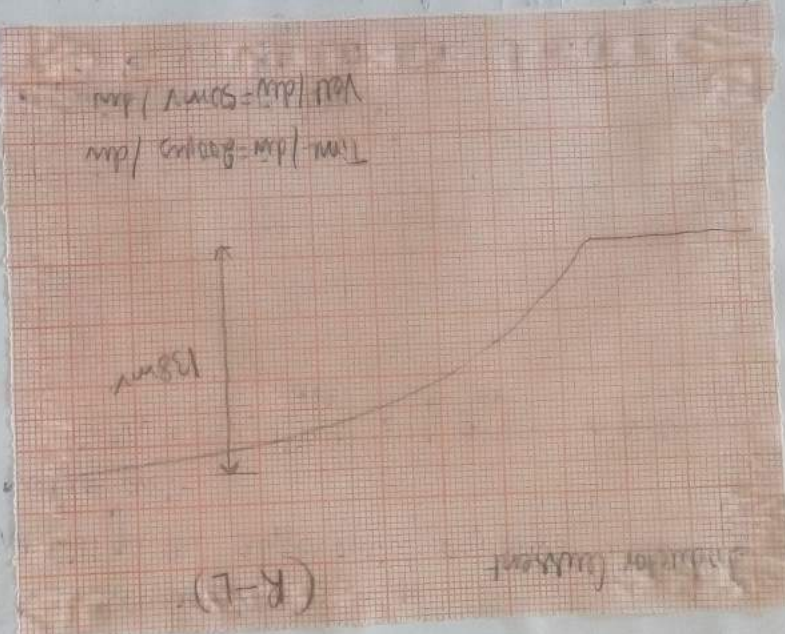 Inductor Current (R-L)
138mv
Time/div=200μs/div
Volt/div=50mv/div